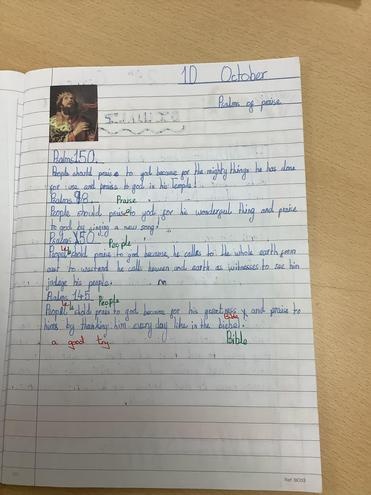 10 October
Psalms of praise
Psalms 150.
People should praise to god because for the mighty things he has done
for use and praises to god in his temple!
Psalms 98. Praise
People should praise to god for his wonderful thing and praise
to god by singing a new song!
Psalms 150 People
should praise to god because he calles to the whole earth form
east to he calls heaven and earth as witnesses to see him
judge his people.
Psalms 145 People
praise to god because for his greatness and praise to
him by thanking him every day like in the
a good try. Bible
Ref